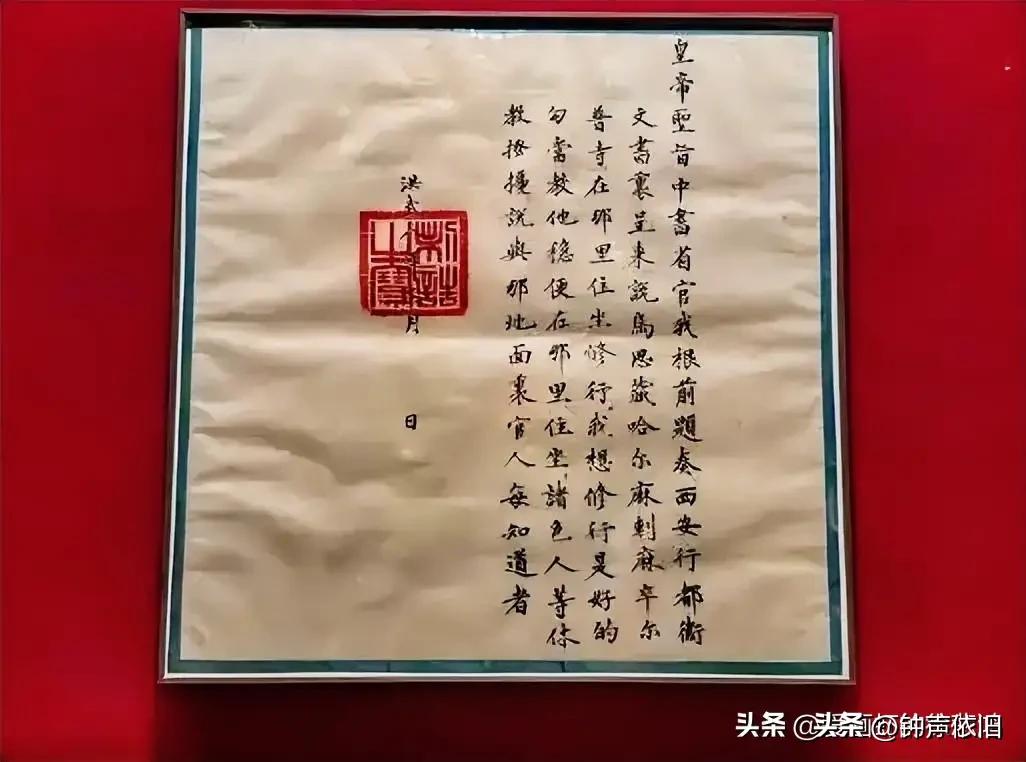 皇帝聖旨中書省官我根前題奏西安行都衛
文書裏呈来說烏思蔵哈尔麻剌麻卒尔
普寺在那里住坐修行我想修行是好的
勾當教他穩便在那里住坐諸色人等休
教搔擾說與那地面裏官人每知道者
洪武 月 日
制誥之寶
头条 @钟声依旧